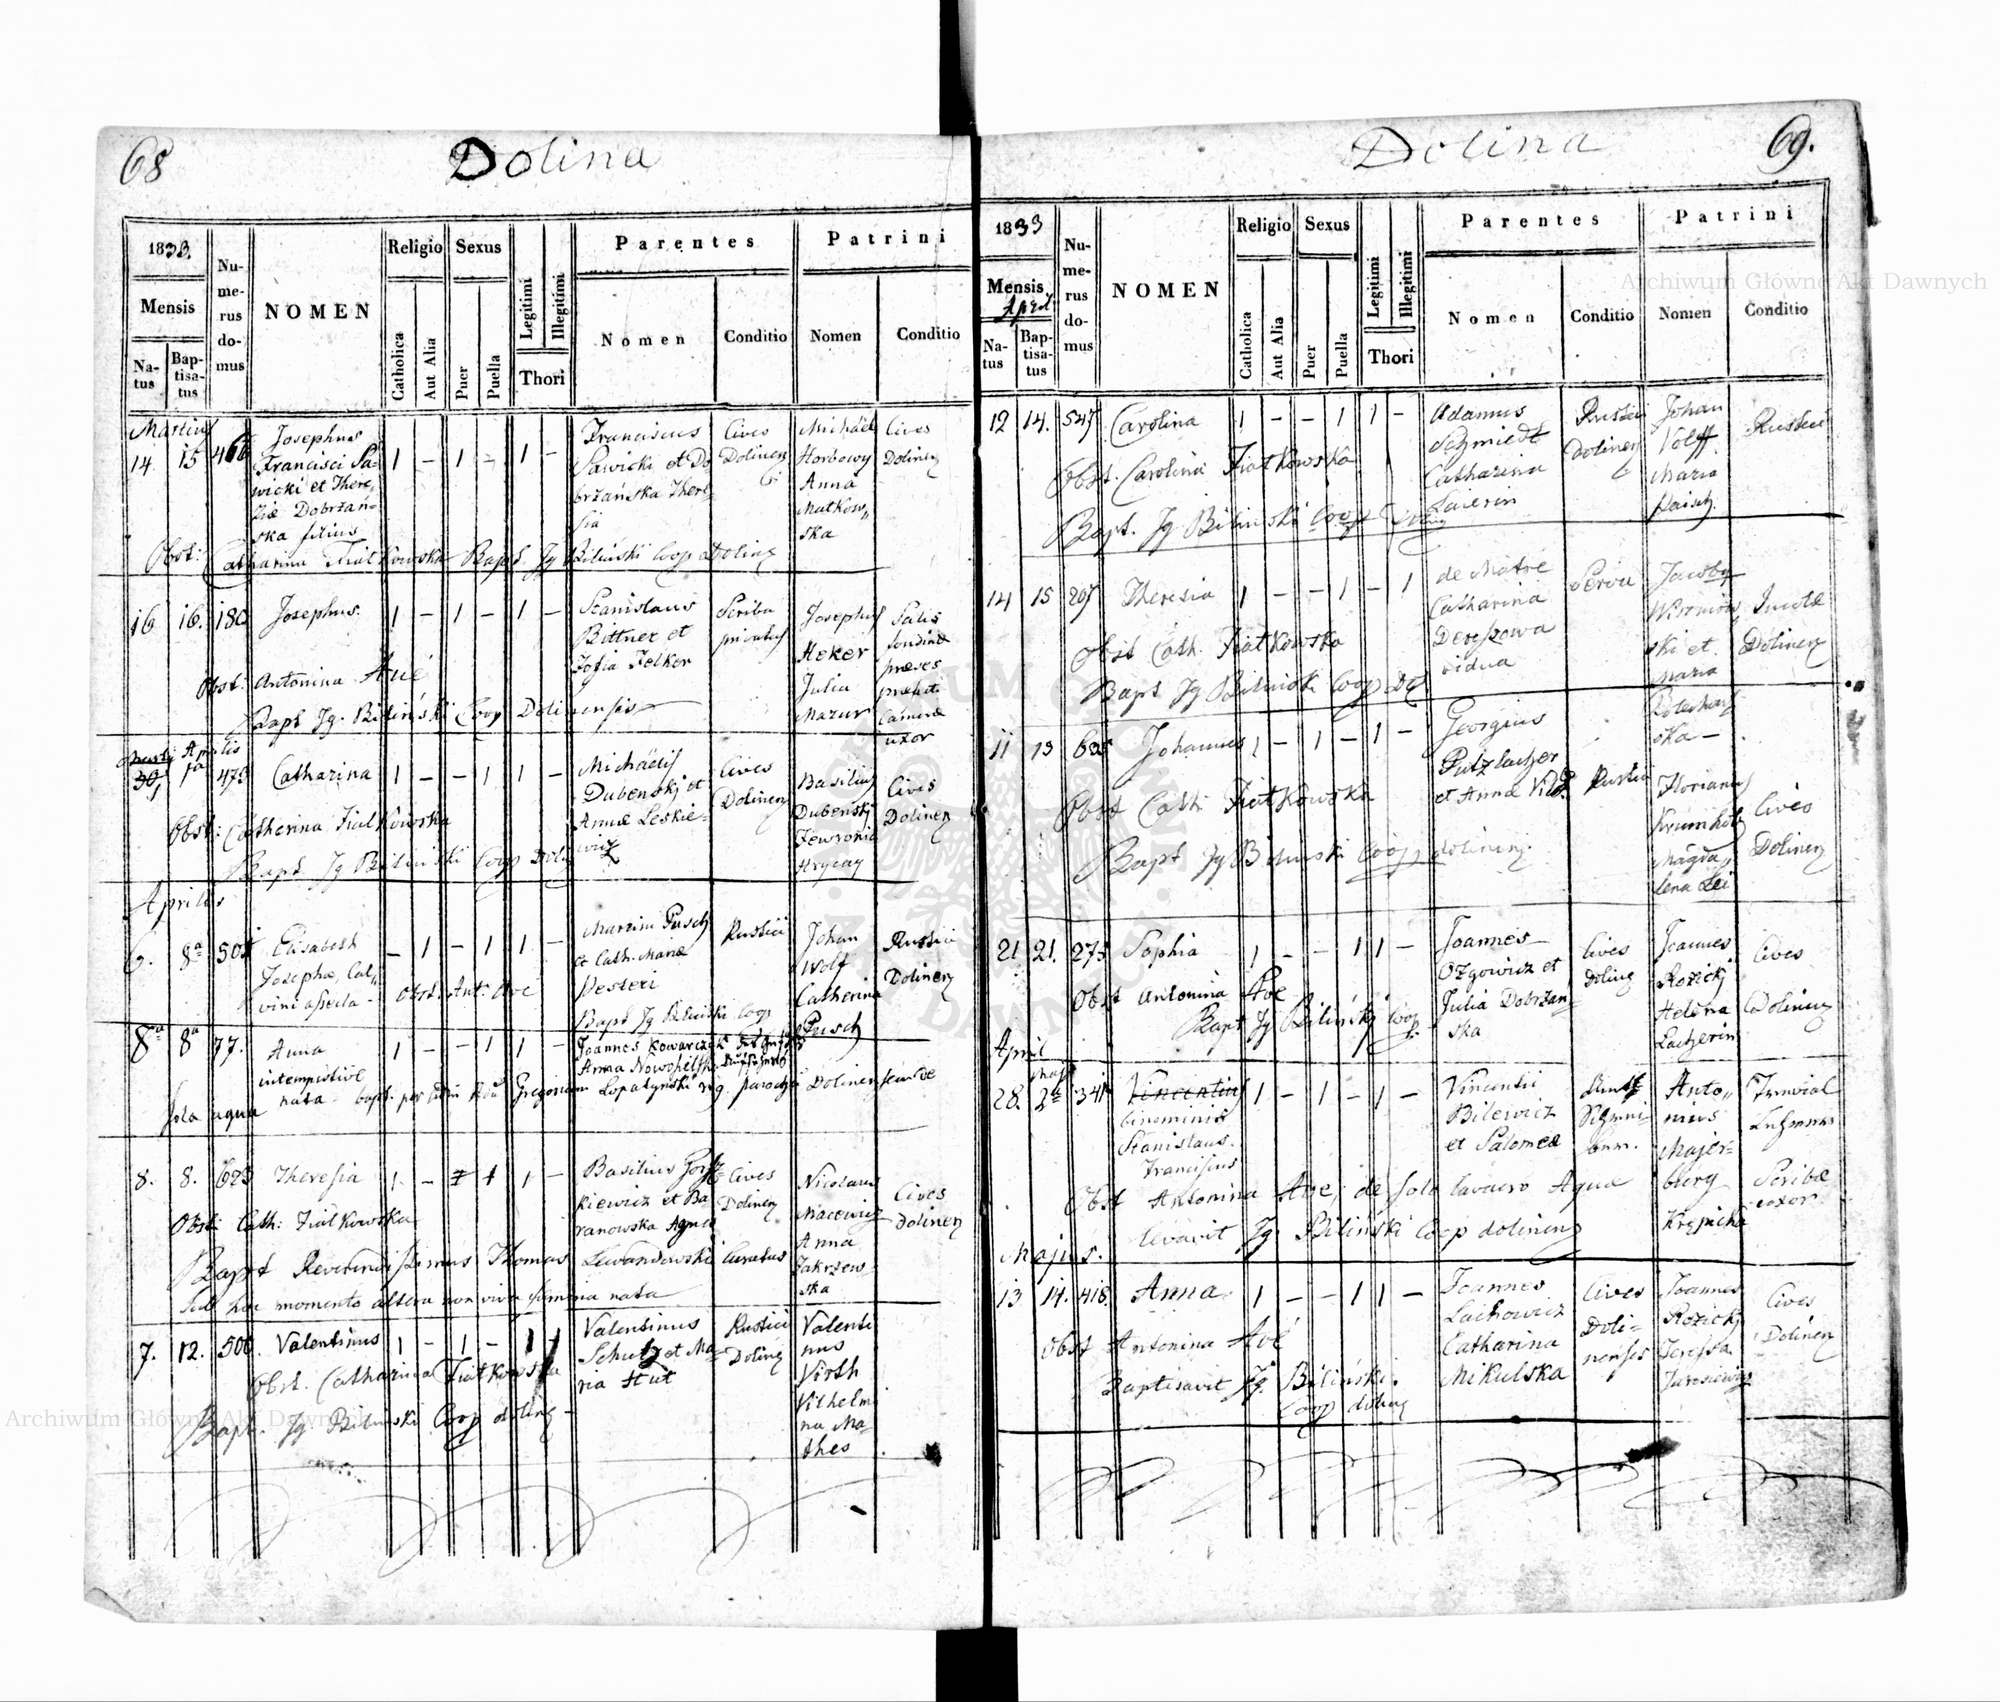 68 Dolina
1833.
Mensis
Na-
tus
Bap-
tisa-
tus
Nu-
me-
rus
do-
mus
NOMEN
Religio
Catholica
Aut Alia
Sexus
Puer
Puella
Legitimi
Illegitimi
Thori
Parentes
Nomen
Conditio
Patrini
Nomen
Conditio
Martius
14 15 466 Josephus 1 – 1 – 1 –
Francisci Sa-
wicki et There,
siæ Dobrzań-
ska filius
Franciscus
Sawicki et Do
brzańska There-
sia
Cives
Doliner
Michäel
Horbowy
Anna
Mutkow,,
ska
Cives
Doliner
Obst: Catharina Fiałkowska Bapt Jg Biliński Coop Dolinę
16 16. 180 Josephus. 1 – 1 – 1 –
Stanislaus
Bittner et
Zofia Felker
Scriba
privatus
Josephus
Heker
Julia
Mazur
Salis
fondinæ
præses
præfecti
Cameræ
uxor
Obst: Antonina Aué
Bapt Jg. Biliński Coop Dolinensis
Aprilis
30, 1a 473 Catharina 1 – – 1 1 –
Michäelis
Dubenski et
Annæ Leskie-
wicz
Cives
Doliner
Basilius
Dubenski
Fewronia
Hrycay
Cives
Doliner
Obst: Catherina Fialkowska
Bapt Jg Biliński Coop Doli
Aprilis
6. 8a 501 Elisabeth – 1 – 1 1 –
Josepha, Cal,,
vini asseda -
Martini Pusch
et Cath. Mariæ
Pesteri
Rustici
Johan
Wolf
Catherina
Pusch
Rustici
Doliner
Obst. Ant: Ave
Bapt Jg Biliński Coop
8a 8a 77. Anna 1 – – 1 1 –
intempestive
nata - bapt. per
sola aqua
Joannes Kowarczyk
Anna Nowosielska
Gregorium Lopatynski rg. parochi Dolinensem de
8. 8. 623 Theresia 1 – 1 1 –
Basilius Gorsz-
kiewicz et Ba
ranowska Agnes
Cives
Doliner
Nicolaus
Macewicz
Anna
Zakrzew
ska
Cives
Doliner
Obst Cath: Fialkowska
Bapt Reverendissimus Thomas Lewandowski Curatus
Sub hoc momento altera non viva femina nata
7. 12. 506. Valentinus 1 – 1 – 1
Valentinus
Schultz et Ma-
ria Hut
Rustici
Dolinę
Valenti
nus
Virth
Vilhelmi
na Ma-
thes
Obst. Catharina Fiatkowska
Bapt. Jg. Biliński Coop dolinę -
Dolina 69.
1833
Mensis
April
Na-
tus
Bap-
tisa-
tus
Nu-
me-
rus
do-
mus
NOMEN
Religio
Catholica
Aut Alia
Sexus
Puer
Puella
Legitimi
Illegitimi
Thori
Parentes
Nomen
Conditio
Patrini
Nomen
Conditio
12 14. 547 Carolina 1 – – 1 1 –
Adamus
Schmiedt
Catharina
Laierin
Rustici
Doliner
Johan
Volff
Maria
Paisch.
Rustici
Obst. Carolina Fiatkowska
Bapt. Jg Biliński Coop
14 15 207 Theresia 1 – – 1 – 1
de Matre
Catharina
Dereszowa
vidua
Serva
ski et
Maria
ska –
Doliner
Obst Cath. Fiatkowska
Bapt Jg Biliński Coop Do
11 13 Johannes 1 – 1 – 1 –
Georgius
Putzlacher
et Anna
Rustici
Florianus
Krumholz
Magda,,
lena Lei
Cives
Doliner
Obst Cath Fiatkowska
Bapt Jg Biliński Coop doliner.
21 21. 275 Sophia 1 – – 1 1 –
Joannes
Ozgowicz et
Julia Dobrzań
ska
Cives
Dolinę
Joannes
Rozicki
Helena
Lacherin
Cives
Doliner
Obst Antonina Ave
Bapt Jg Biliński Coop
April
28. 341 Vincentius 1 – 1 – 1 –
binominis
Stanislaus.
Francisus
Vincentii
Bilewicz
et Salomea
Anto,,
nius
Majer-
berg
Krępicka
Trivial
Scribæ
uxor
Obst Antonina Ave, de solo lavacro Aquæ
levavit Jg. Biliński Coop doliner
Majus.
13 14. 418. Anna 1 – – 1 1 –
Joannes
Lachowicz
Catharina
Mikulska
Cives
Doli-
nenses
Joannes
Rozicki
Teressa
Jurosiewicz
Cives
Doliner
Obst Antonina Avé
Baptisavit Jg. Biliński.
Coop dolinę
Archiwum Główne Akt Dawnych
Archiwum Główne Akt Dawnych